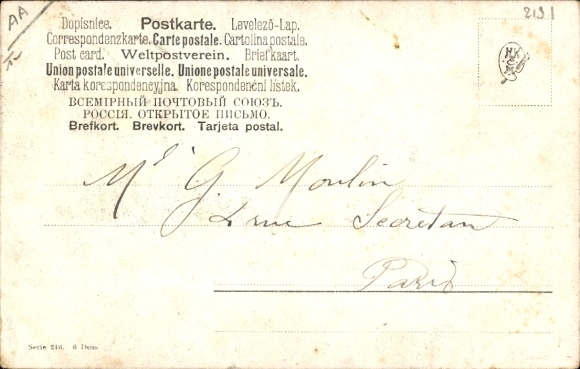 AA
2191
Dopisnice. Postkarte. Levelező-Lap.
Correspondenzkarte. Carte postale. Cartolina postale.
Post card. Weltpostverein. Briefkaart.
Union postale universelle. Unione postale universale.
Karta korespondencyjna. Korespondenční lístek.
ВСЕМІРНЫЙ ПОЧТОВЫЙ СОЮЗЪ.
РОССІЯ. ОТКРЫТОЕ ПИСЬМО.
Brefkort. Brevkort. Tarjeta postal.
G. Moulin
rue Secretan
Paris
Serie 216. 6 Dess.